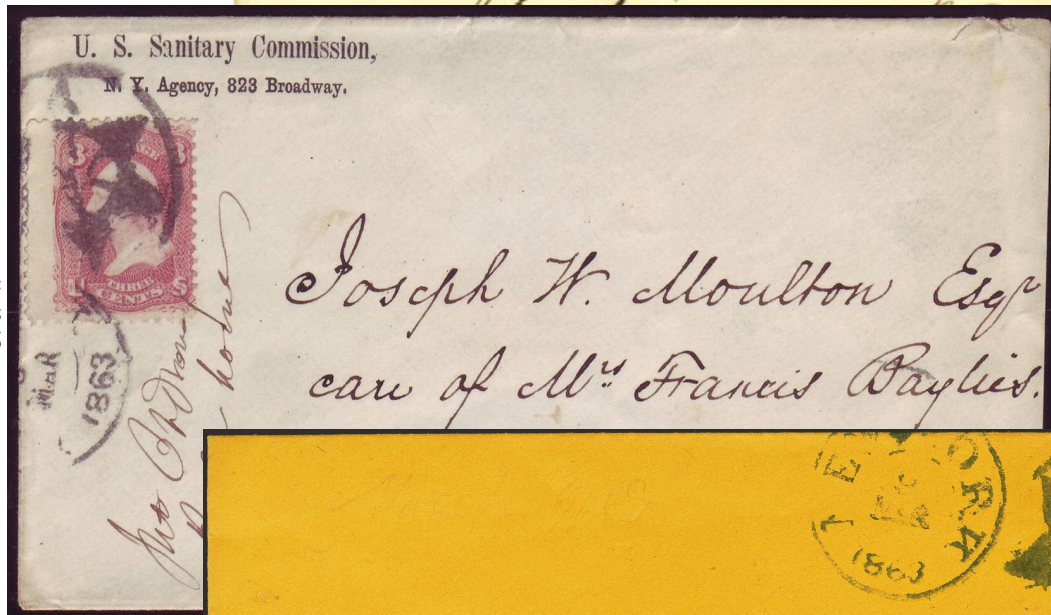 U. S. Sanitary Commission,
N. Y. Agency, 823 Broadway.
3
CENTS
MaR
1863
Joseph W. Moulton Esqr
care of Mrs Francis Baylies.
home
YORK
1863